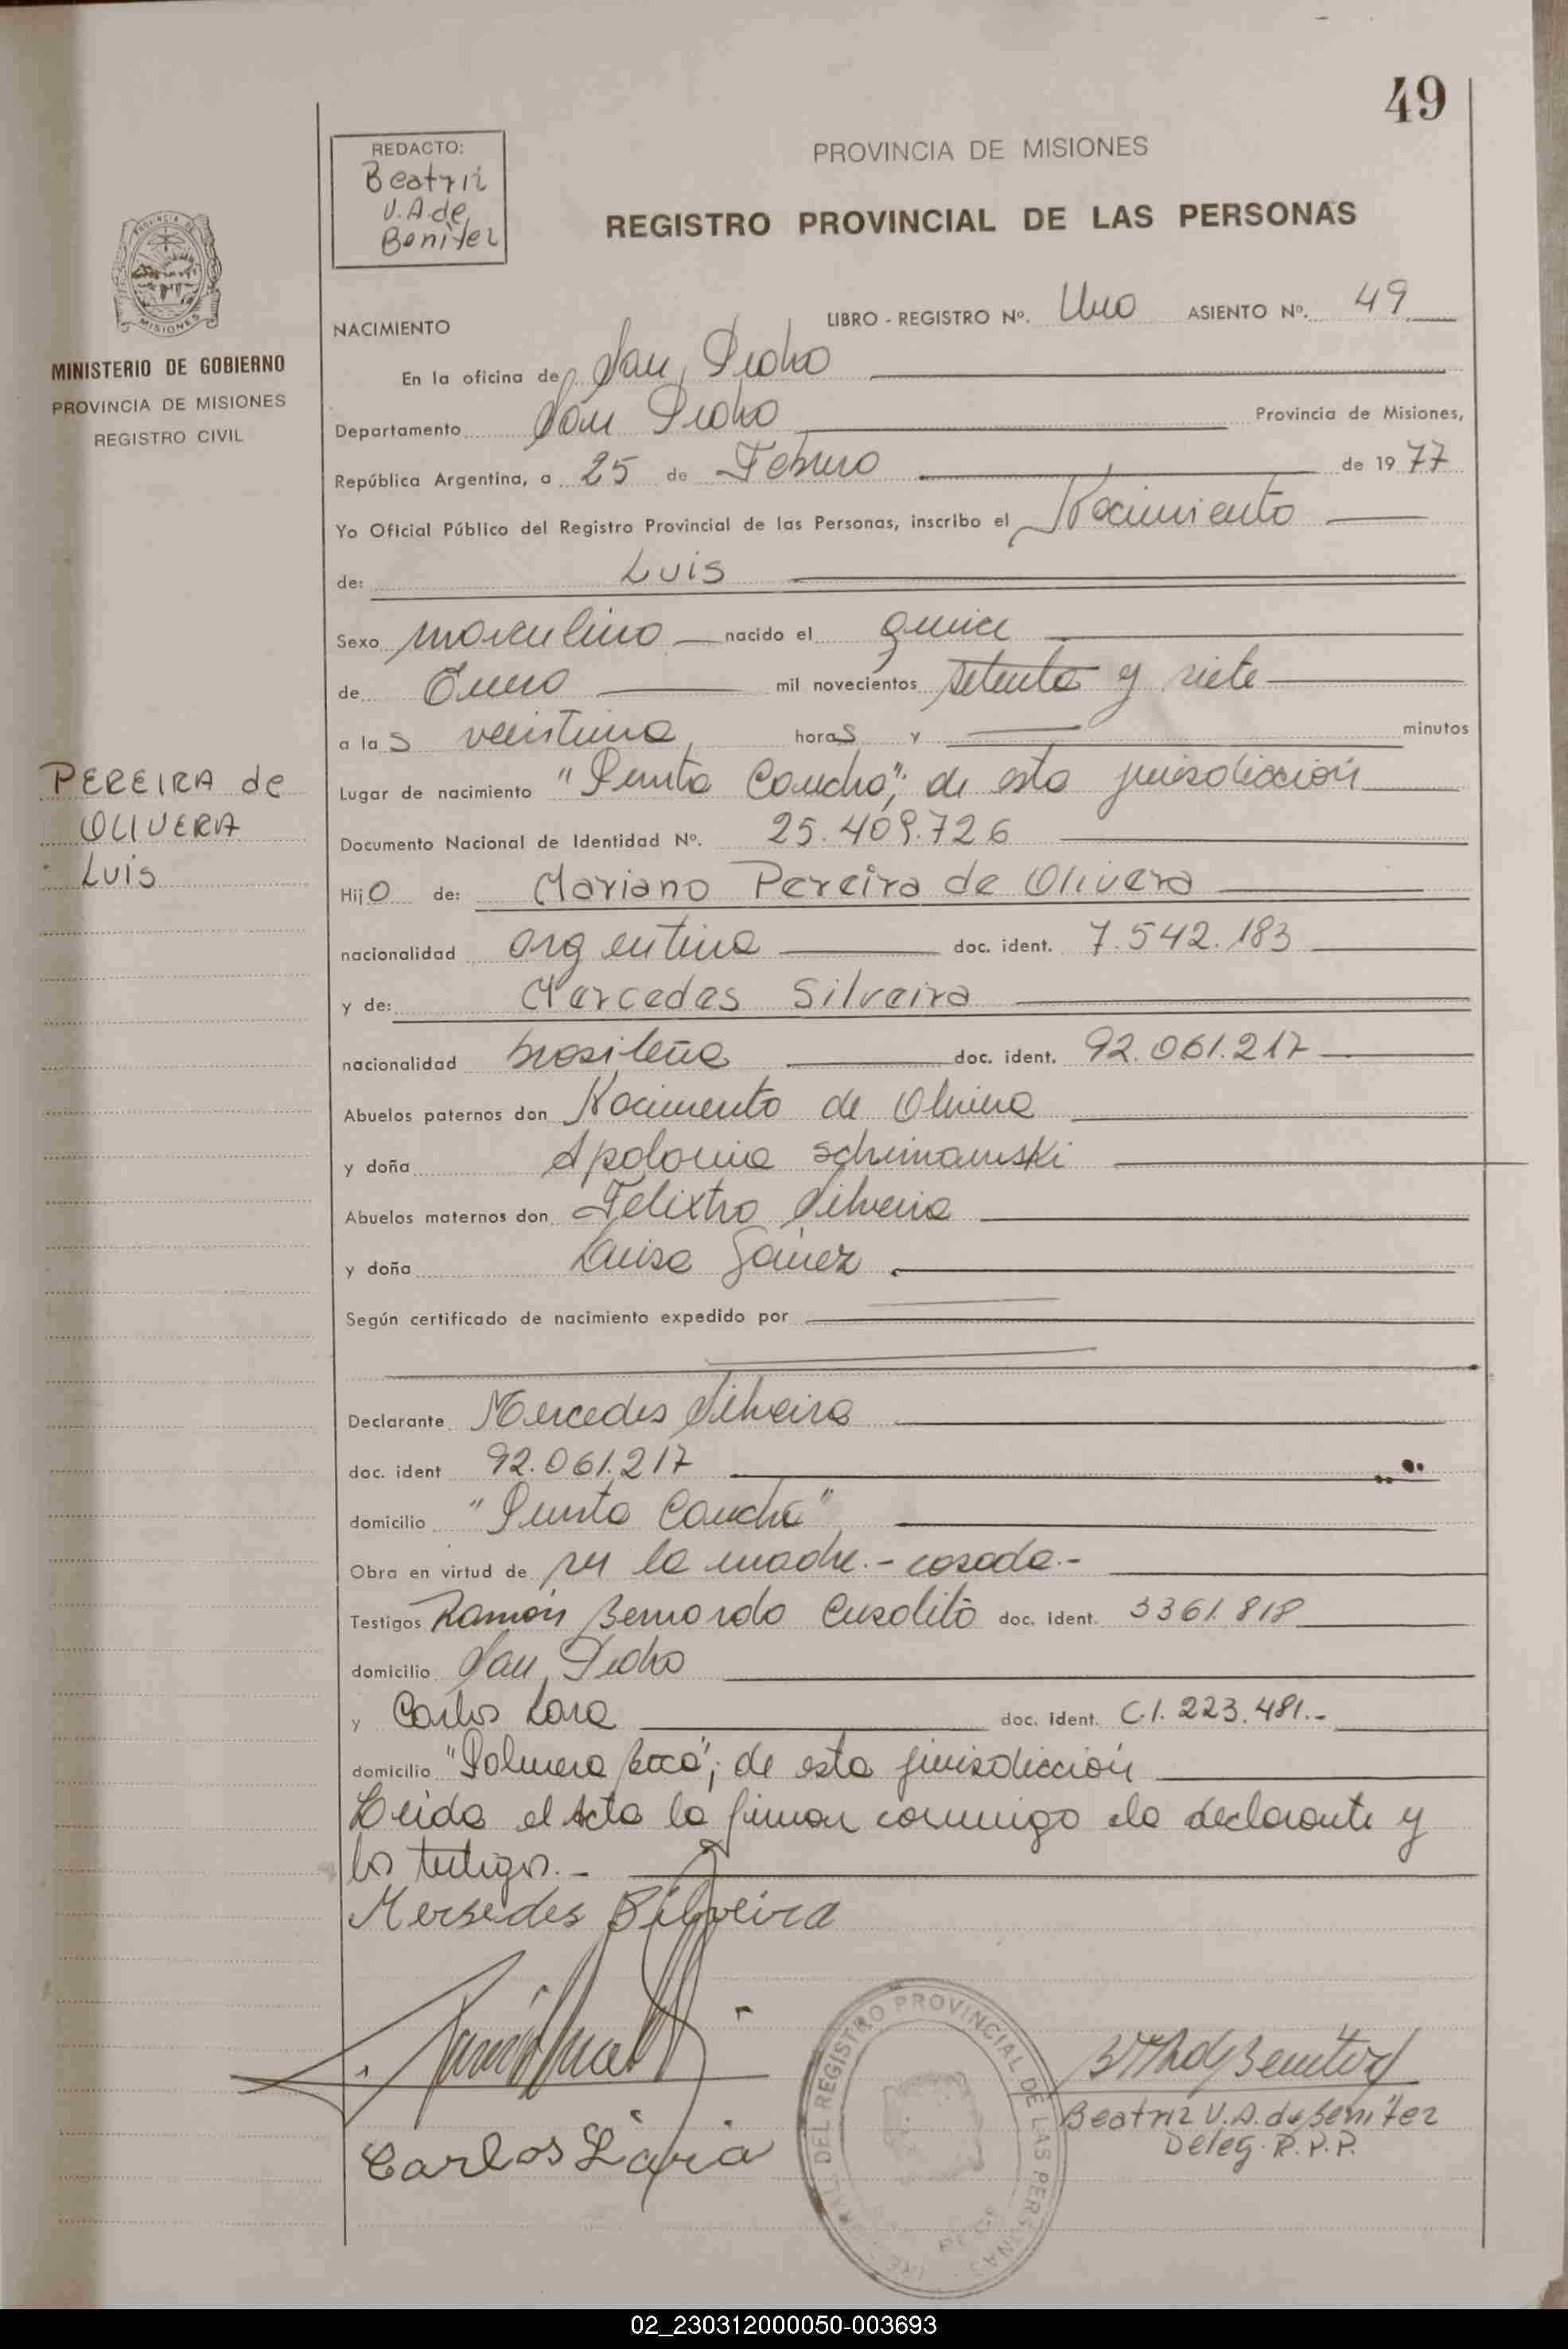 49
REDACTO:
Beatriz
V. A. de
Benítez
PROVINCIA DE MISIONES
REGISTRO PROVINCIAL DE LAS PERSONAS
MISIONES
MINISTERIO DE GOBIERNO
PROVINCIA DE MISIONES
REGISTRO CIVIL
NACIMIENTO
LIBRO - REGISTRO Nº. Uno ASIENTO Nº. 49
En la oficina de San Pedro
Departamento San Pedro Provincia de Misiones,
República Argentina, a 25 de Febrero de 1977
Yo Oficial Público del Registro Provincial de las Personas, inscribo el Nacimiento
de: Luis
Sexo masculino nacido el quince
de Enero mil novecientos setenta y siete
a las veintiuna horas y minutos
Lugar de nacimiento "Punta Caucho", de esta jurisdicción
PEREIRA de
OLIVERA
Luis
Documento Nacional de Identidad Nº. 25.409.726
Hijo de: Mariano Pereira de Olivera
nacionalidad argentina doc. ident. 7.542.183
y de: Mercedes Silveira
nacionalidad brasileña doc. ident. 92.061.217
Abuelos paternos don Nacimento de Olivera
y doña Apolonia
Abuelos maternos don Silveira
y doña Luisa
Según certificado de nacimiento expedido por
Declarante Mercedes Silveira
doc. ident 92.061.217
domicilio "Punta Caucho"
Obra en virtud de ser la madre.- casada.-
Testigos Ramón Bernardo doc. ident. 3361.818
domicilio San Pedro
y Carlos Lara doc. ident. C.I. 223.481.-
domicilio "Palmera Boca", de esta jurisdicción
Leída el Acta la firman conmigo la declarante y
los testigos.-
Mersedes Silveira
Carlos Lara
DEL REGISTRO PROVINCIAL DE LAS PERSONAS
Beatriz V. A. de Benítez
Deleg. R. P. P.
02_230312000050-003693